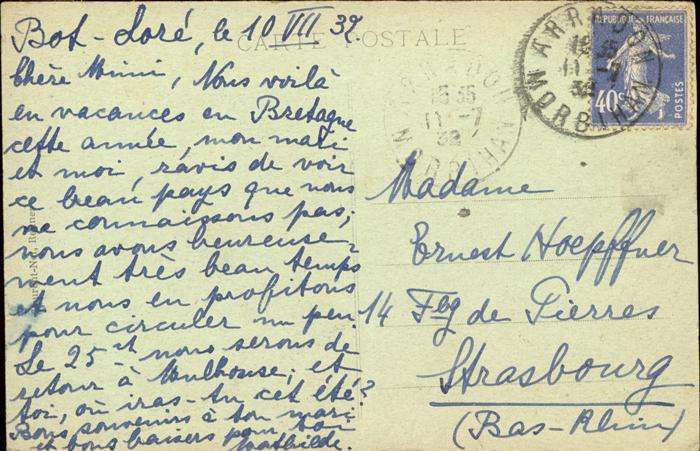 CARTE POSTALE
Bot-Loré, le 10 VII 32.
Chère Mimi, Nous voilà
en vacances en Bretagne
cette année, mon mari
et moi, ravis de voir
ce beau pays que nous
ne connaissons pas;
nous avons heureuse-
ment très beau temps
et nous en profitons
pour circuler un peu.
Le 25 ct nous serons de
retour à Mulhouse; et
toi, où iras-tu cet été?
Bons souvenirs à ton mari
et bons baisers pour toi
Mathilde.
REPUBLIQUE FRANÇAISE
POSTES
40
ARRADON
11-7
32
MORBIHAN
11-7
32
MORBIHAN
Madame
Ernest Hoepffner
14 Fbg de Pierres
Strasbourg
(Bas-Rhin)